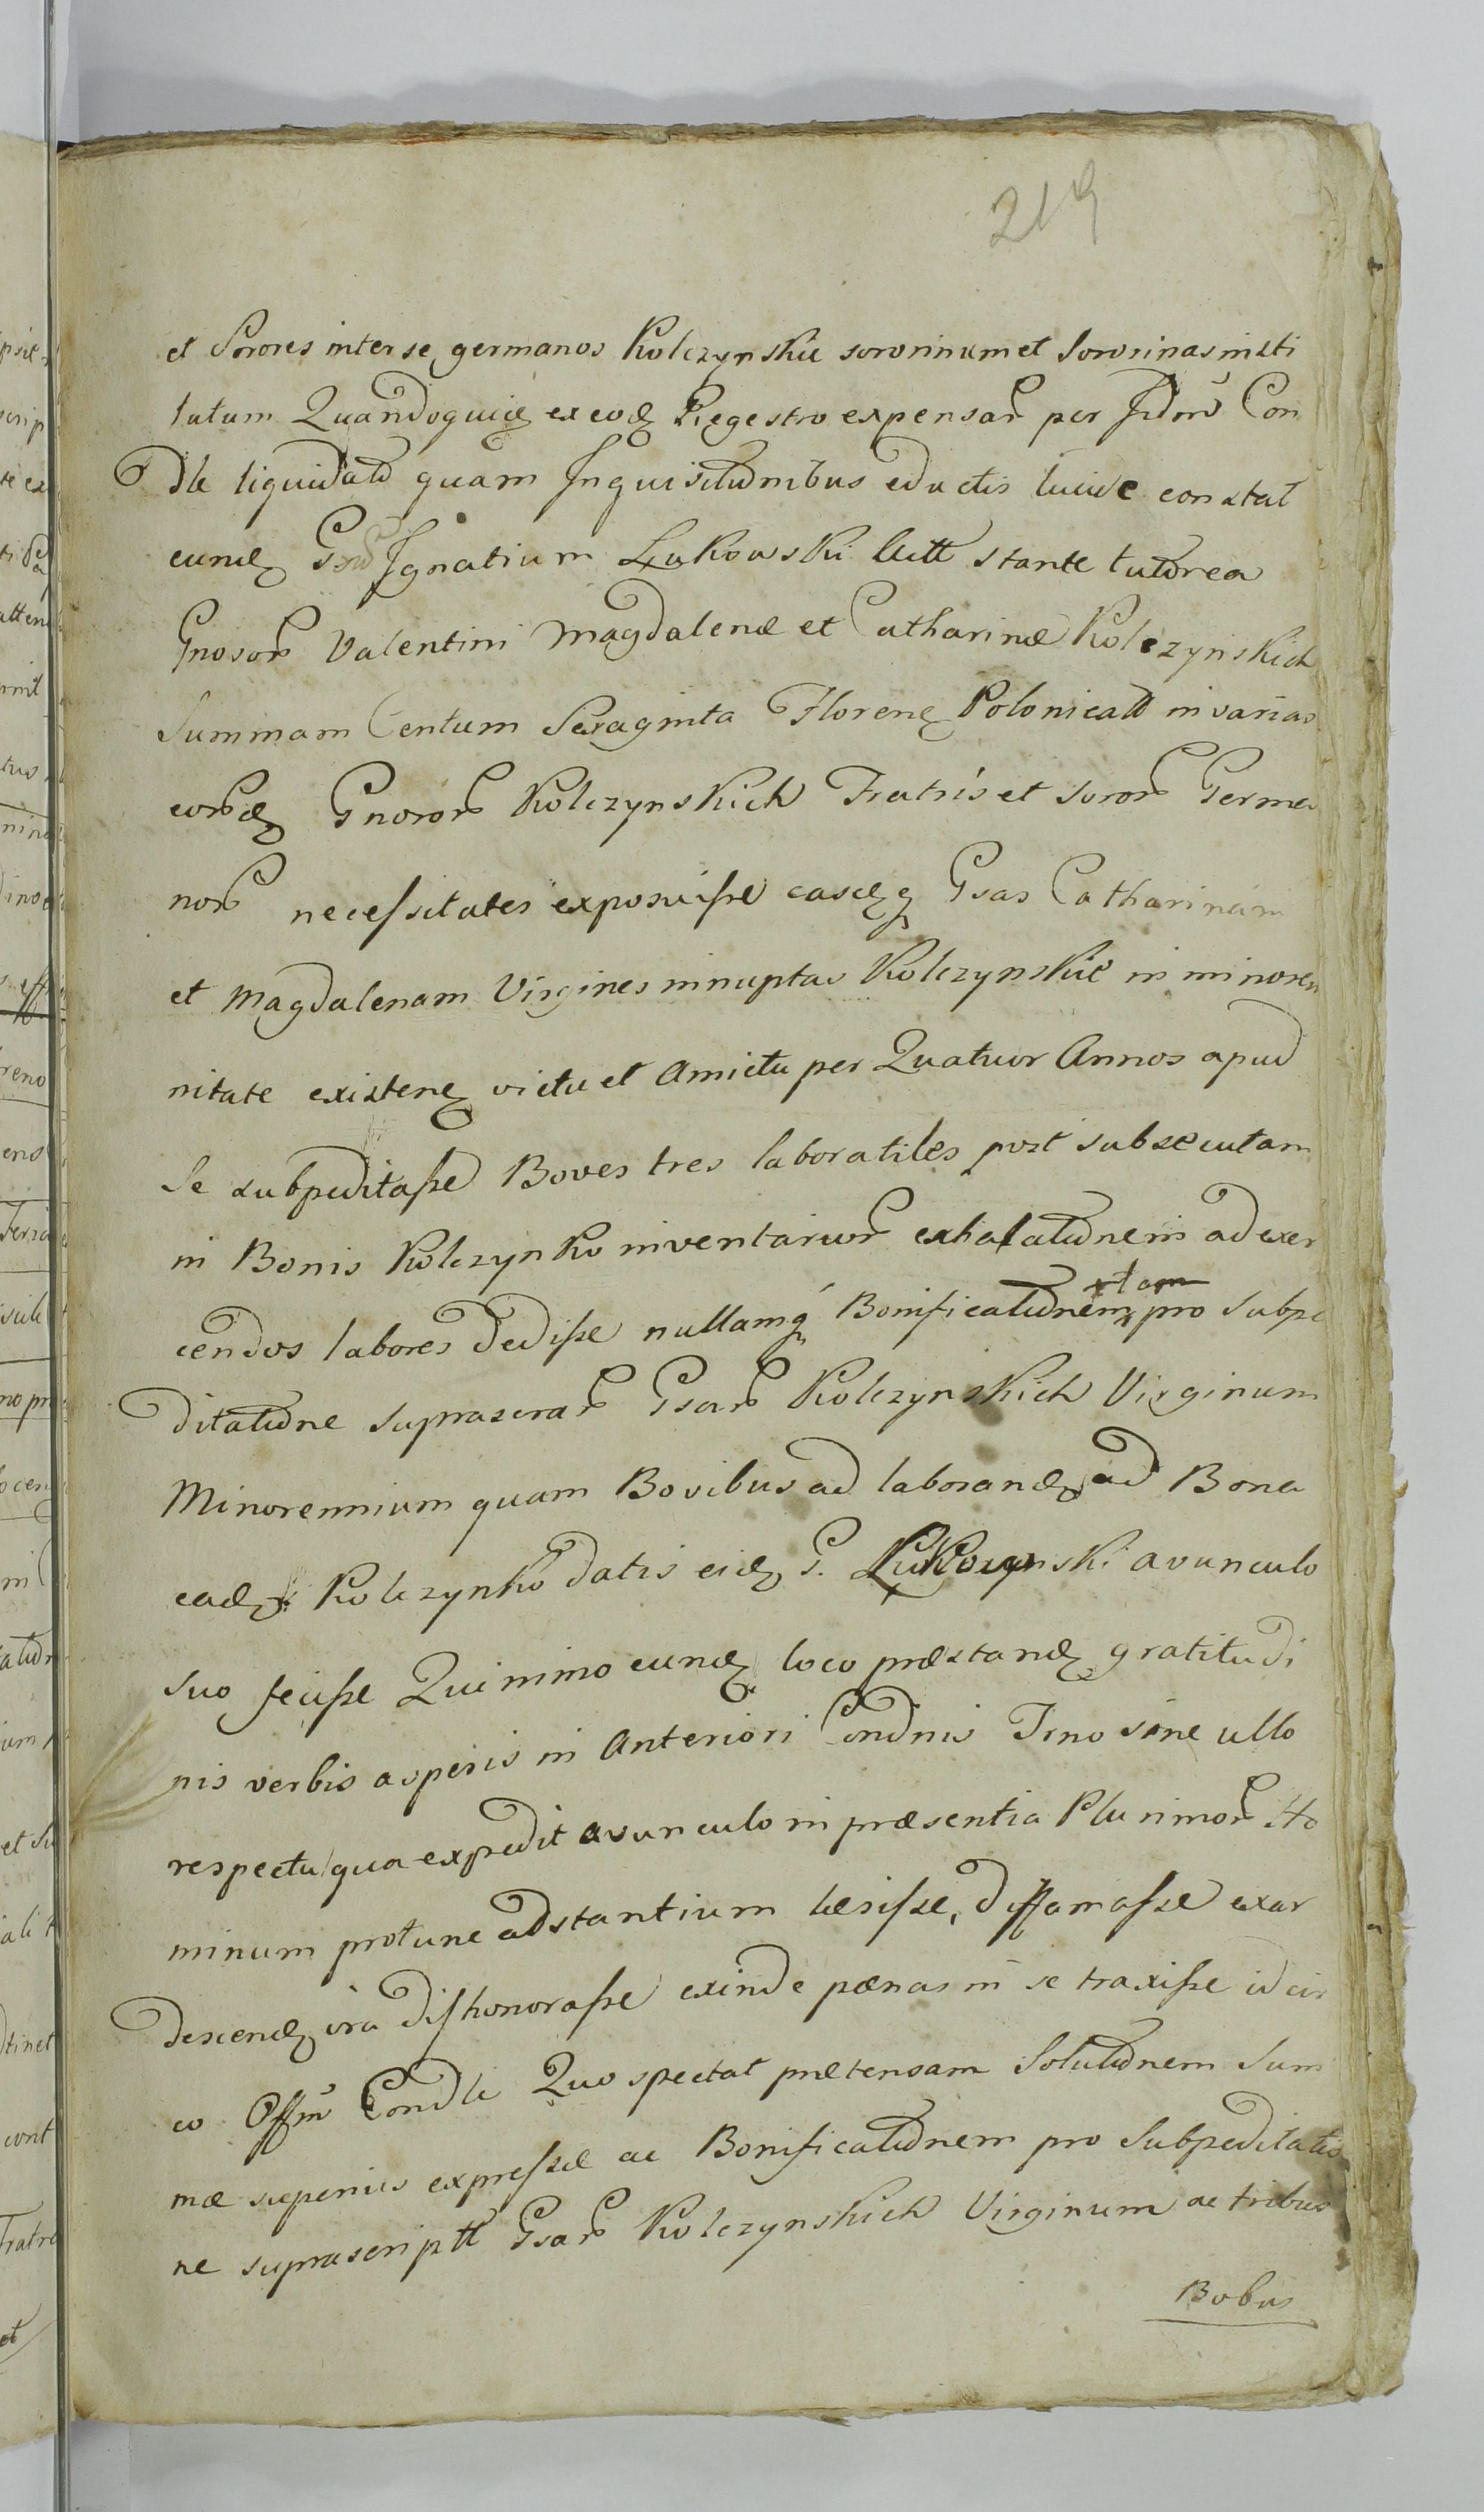 219
et Sorores inter se germanos Kolczynskie sororinum et Sororinas insti
tutum Quandoquidẽ ex eodẽ Regestro expensarũ per Con
dle liquidato quam Inquisitionibus eductis lucide constat
eundẽ Ignatium Łukowski stante tutorea
Gnosorũ Valentini Magdalenæ et Catharinæ Kolczynskich
Summam Centum Sexaginta Florenẽ Polonicall in varias
eorũdẽ Gnororũ Kolczynskich Fratris et Sororũ Germa
norũ necessitates exposuisse easdẽq Gsas Catharinam
et Magdalenam Virgines innuptas Kolczynskie in minoren
nitate existenẽ victu et Amictu per Quatuor Annos apud
Se subpeditasse Boves tres laboratiles post subsecutam
in Bonis Kolczynko inventariorũ exhalationem ad exer
cendos labores dedisse nullamq Bonificationem pro Subpe
ditatione suprascrarũ Gsarũ Kolczynskich Virginum
Minorennium quam Bovibus ad laborandẽ ad Bona
eadẽ Kolczynko datis eidẽ G. avunculo
Suo fecisse Quinimo eundẽ loco præstandẽ gratitudi
nis verbis asperis in Anteriori Condnis Trno sine ullo
respectu qua expedit avunculo in præsentia Plurimorũ Ho
minum protunc adstantium læsisse, diffamasse exar
descendẽ ira dishonorasse exinde pænas in se traxisse idcir
co Offm Condle Quo spectat prætensam Solutionem Sum
mæ superius expressæ ac Bonificationem pro Subpeditatio
ne suprascriptt Gsarũ Kolczynskich Virginum ac tribus
Bobus